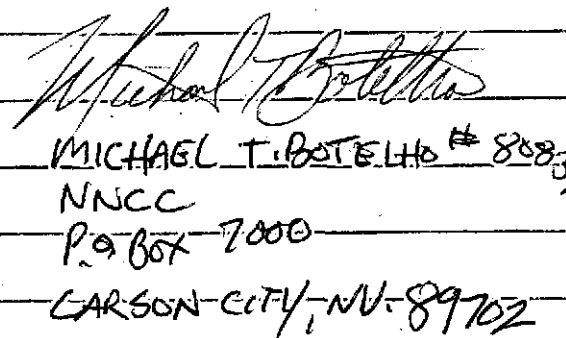 Michael T. Botelho
MICHAEL T. BOTELHO # 808
NNCC
P.O BOX 7000
CARSON CITY, NV. 89702